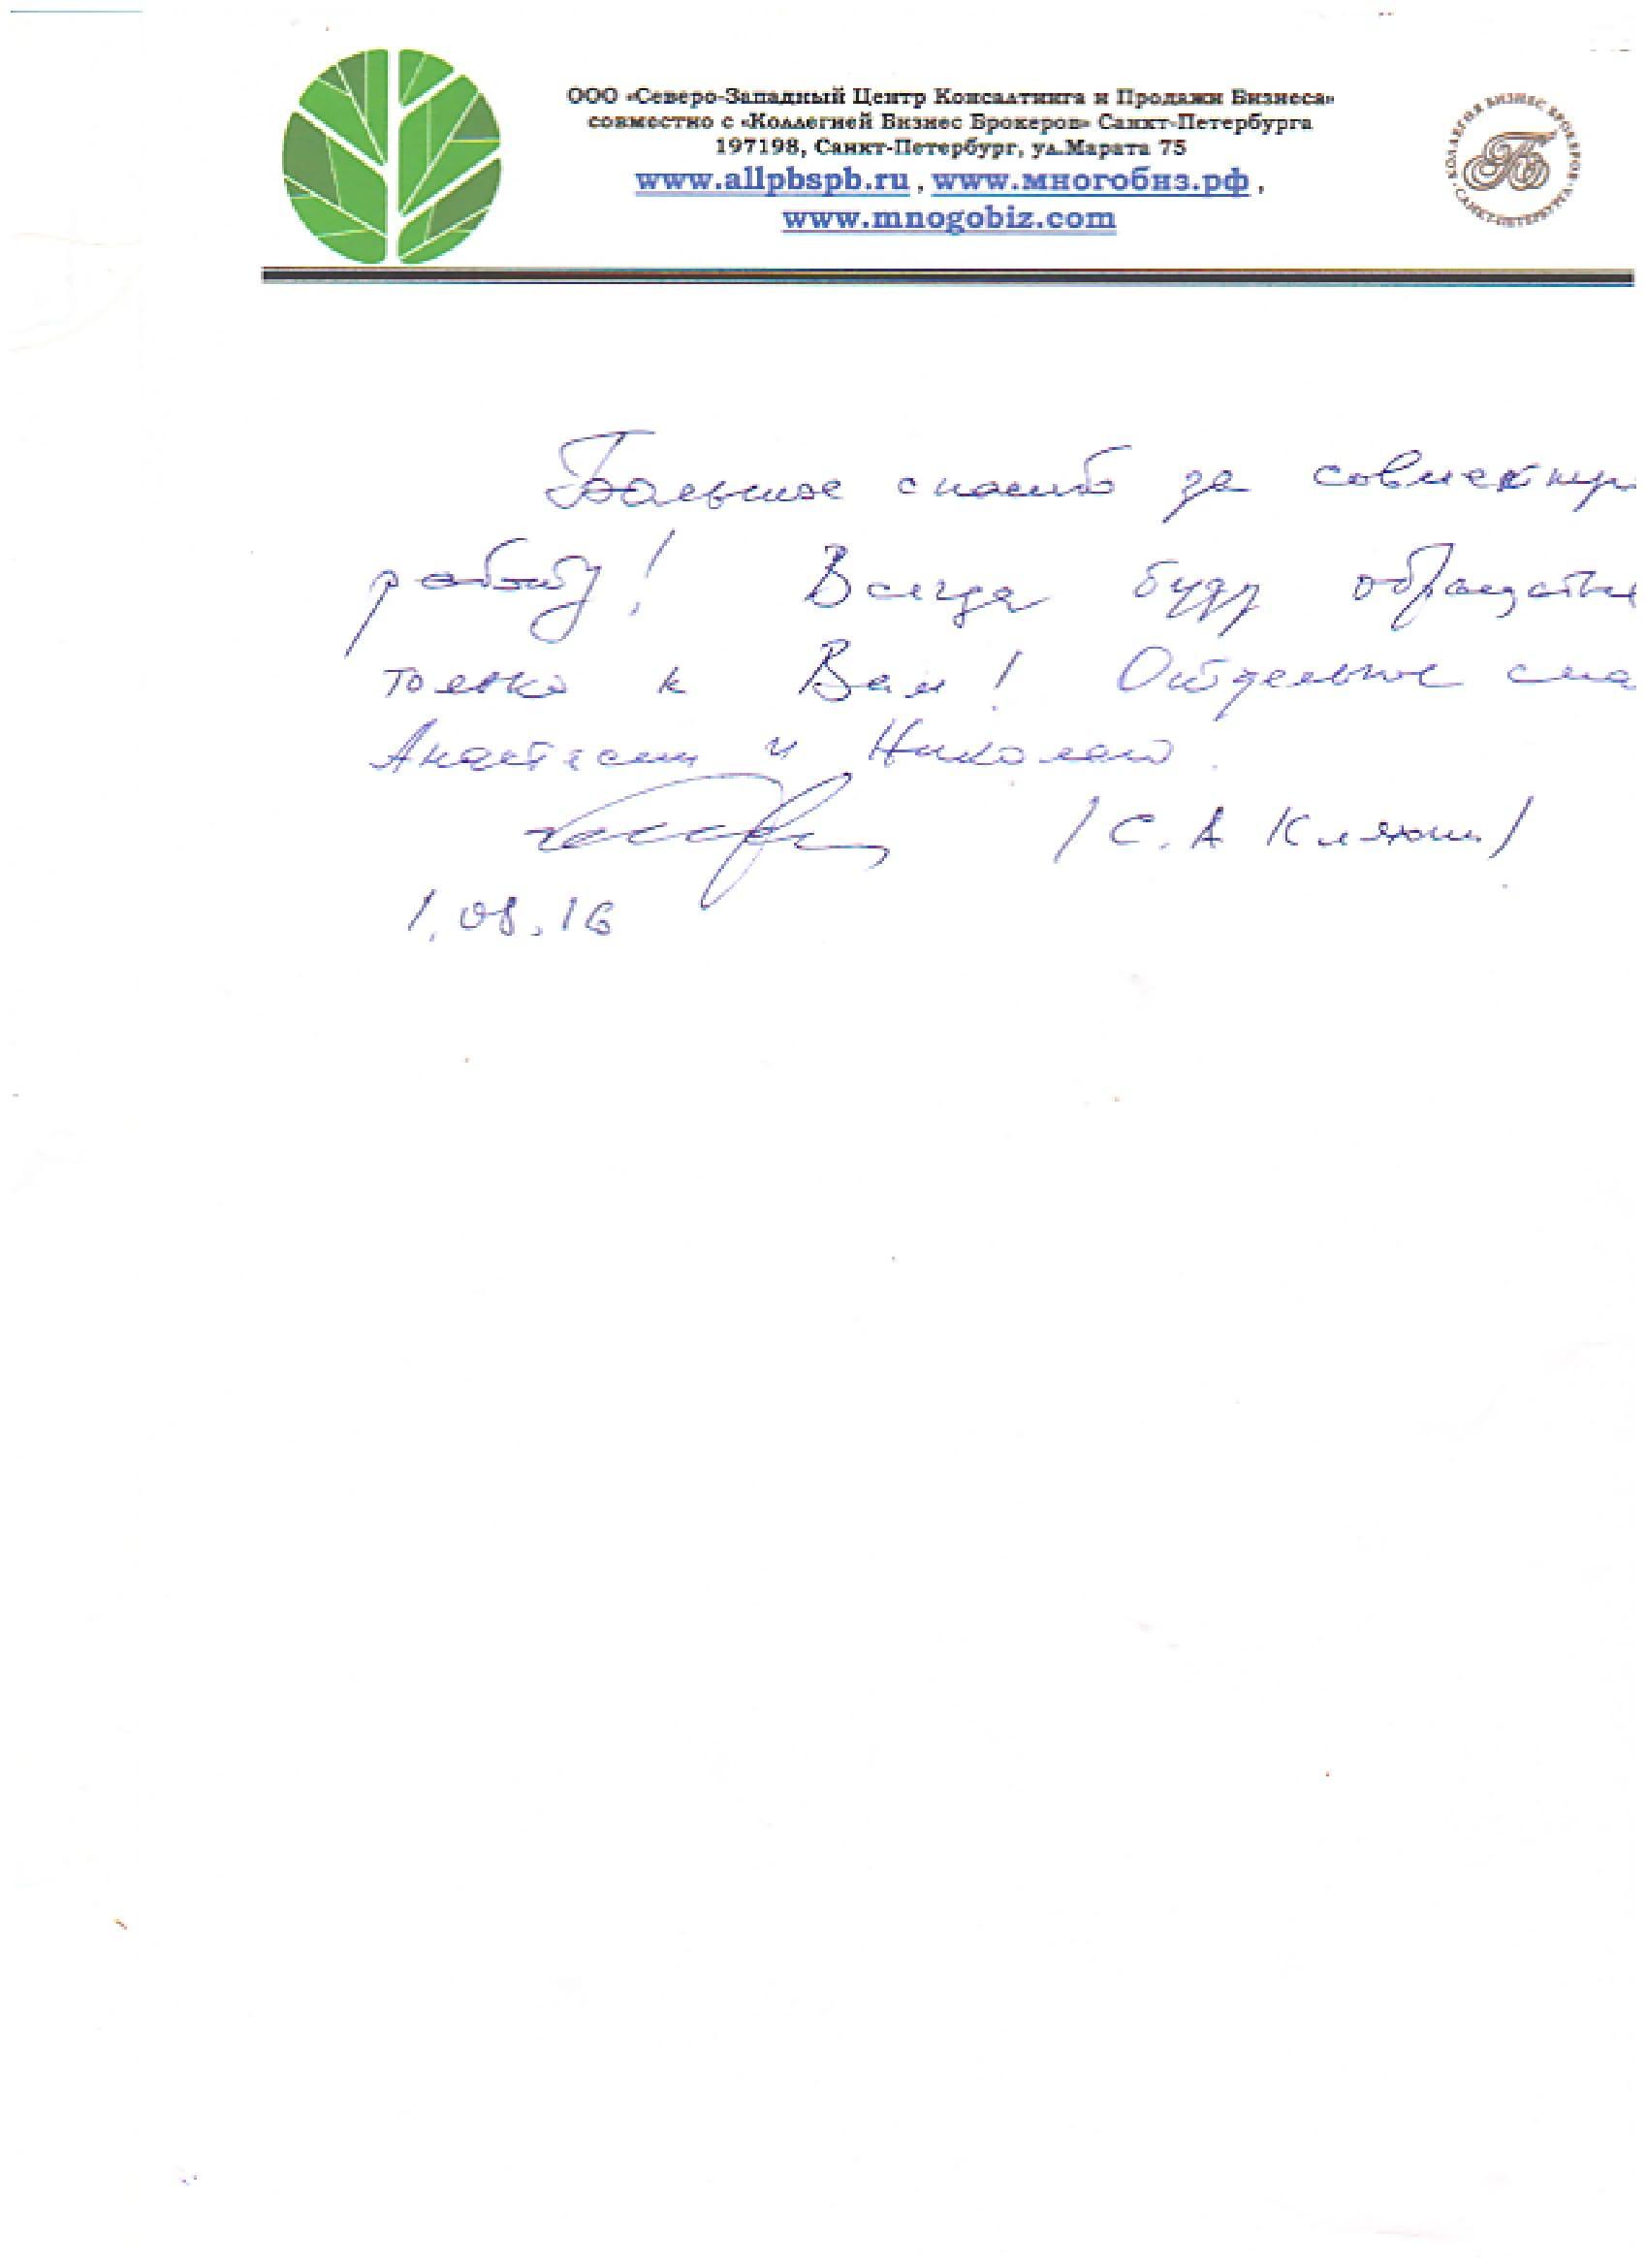 ООО «Северо-Западный Центр Консалтинга и Продажи Бизнеса»
совместно с «Коллегией Бизнес Брокеров» Санкт-Петербурга
197198, Санкт-Петербург, ул.Марата 75
www.allpbspb.ru , www.многобиз.рф ,
www.mnogobiz.com
КОЛЛЕГИЯ БИЗНЕС БРОКЕРОВ • САНКТ-ПЕТЕРБУРГА •
Большое спасибо за совместную
работу! Всегда буду обращаться
только к Вам! Отдельное спа
Анастасии и Николаю.
/ С. А Клюкин /
1.08.16